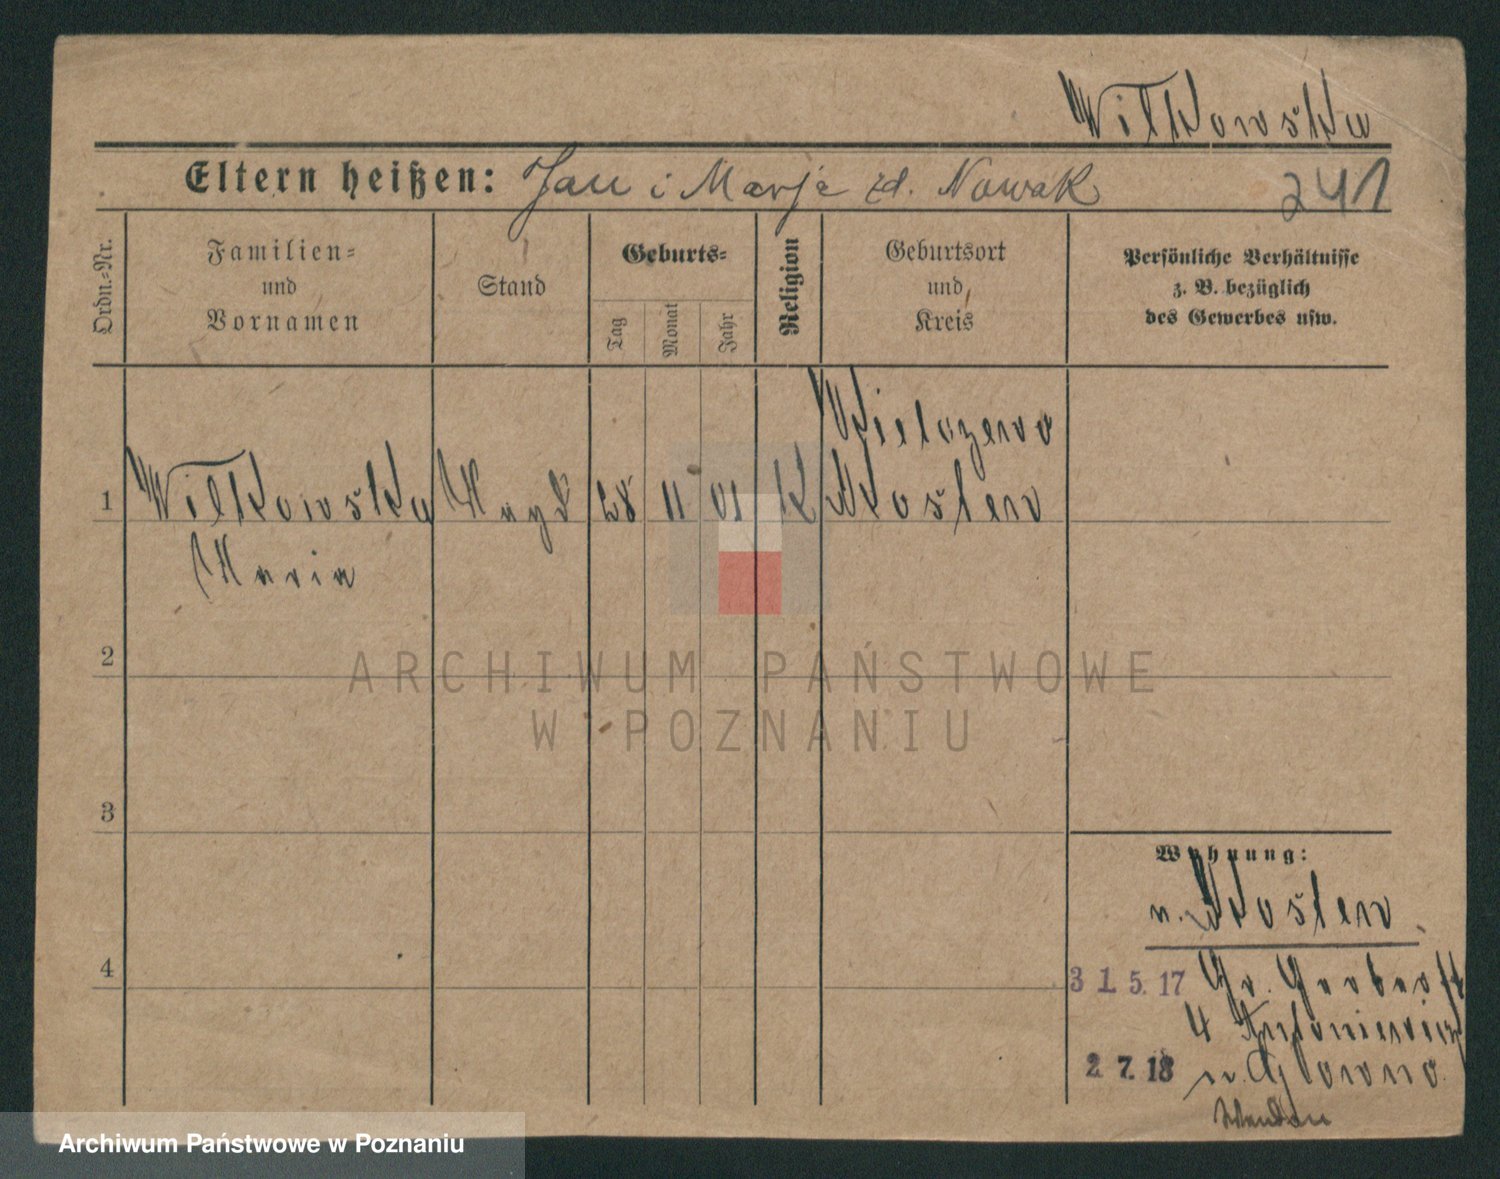 Wilkowska
Eltern heißen: Jan i Marja zd. Nowak 241
Ordn.-Nr.
Familien-
und
Vornamen
Stand
Geburts-
Tag
Monat
Jahr
Religion
Geburtsort
und
Kreis
Persönliche Verhältnisse
z. B. bezüglich
des Gewerbes usw.
Wielozewo
1 Wilkowska Magd 28 11 01 K Kosten
Maria
2
3
4
ARCHIWUM PAŃSTWOWE
W POZNANIU
Wohnung:
n. Kosten
31.5.17 Gr. Gerberstr
4 Antoniewicz
2.7.18 n. Glowno
Wenden
Archiwum Państwowe w Poznaniu